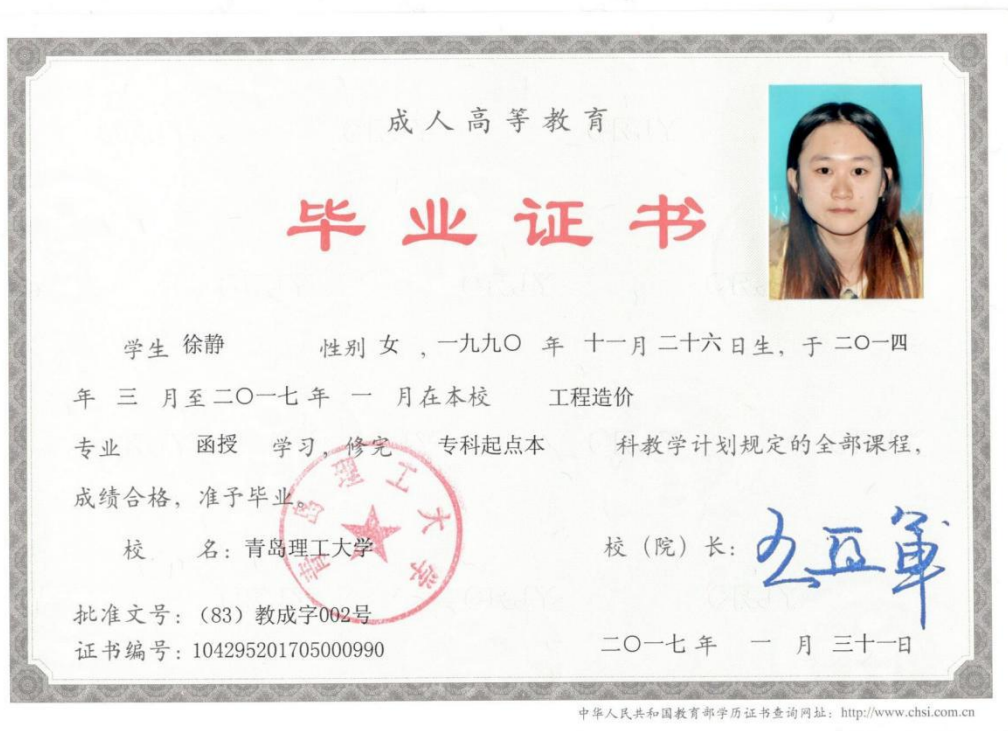 成人高等教育
毕业证书
学生 徐静 性别 女 ，一九九〇 年 十一月 二十六日生，于 二〇一四
年 三 月至二〇一七年 一 月在本校 工程造价
专业 函授 学习，修完 专科起点本 科教学计划规定的全部课程，
成绩合格，准予毕业。
校 名：青岛理工大学 校（院）长：
青岛理工大学
批准文号：（83）教成字002号
证书编号：104295201705000990 二〇一七年 一 月 三十一日
中华人民共和国教育部学历证书查询网址：http://www.chsi.com.cn